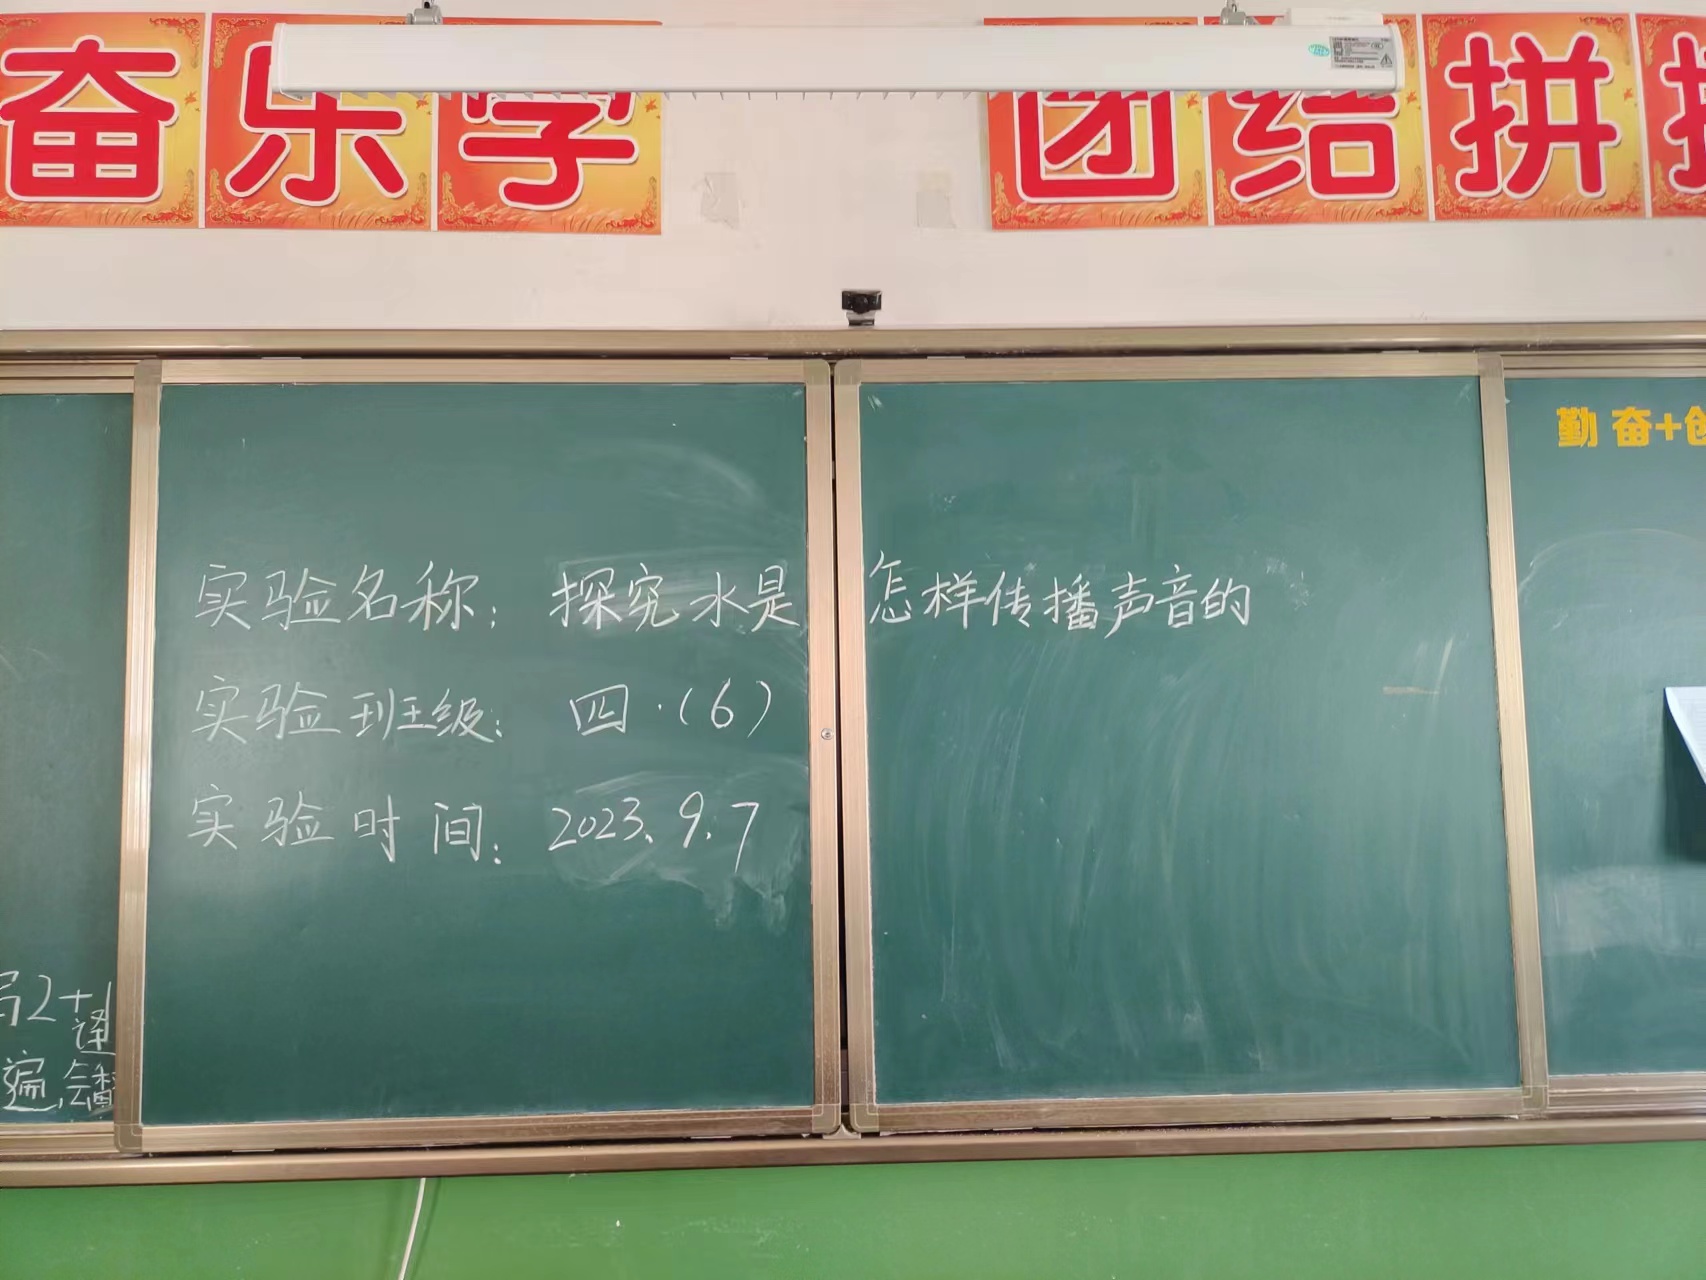 奋乐学 团结拼
勤奋+创
实验名称：探究水是怎样传播声音的
实验班级：四·（6）
实验时间：2023.9.7
写2+
译
遍,会